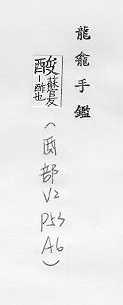 龍龕手鑑
酸蘇
酢也
(酉部
V2
P53
A6)